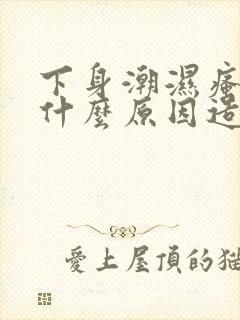 下身潮濕瘙
什麼原因造
愛上屋頂的貓